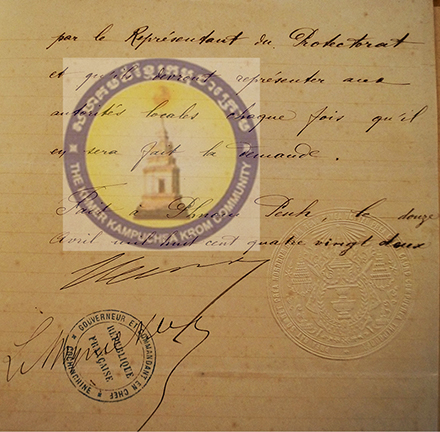 par le Représentant du Protectorat
et qu'ils devront représenter aux
autorités locales chaque fois qu'il
en sera fait la demande.
THE KHMER KAMPUCHEA KROM COMMUNITY
Fait à Phnom Penh, le douze
Avril mil huit cent quatre vingt deux
GOUVERNEUR ET COMMANDANT EN CHEF
RÉPUBLIQUE
FRANÇAISE
COCHINCHINE
Le Myre